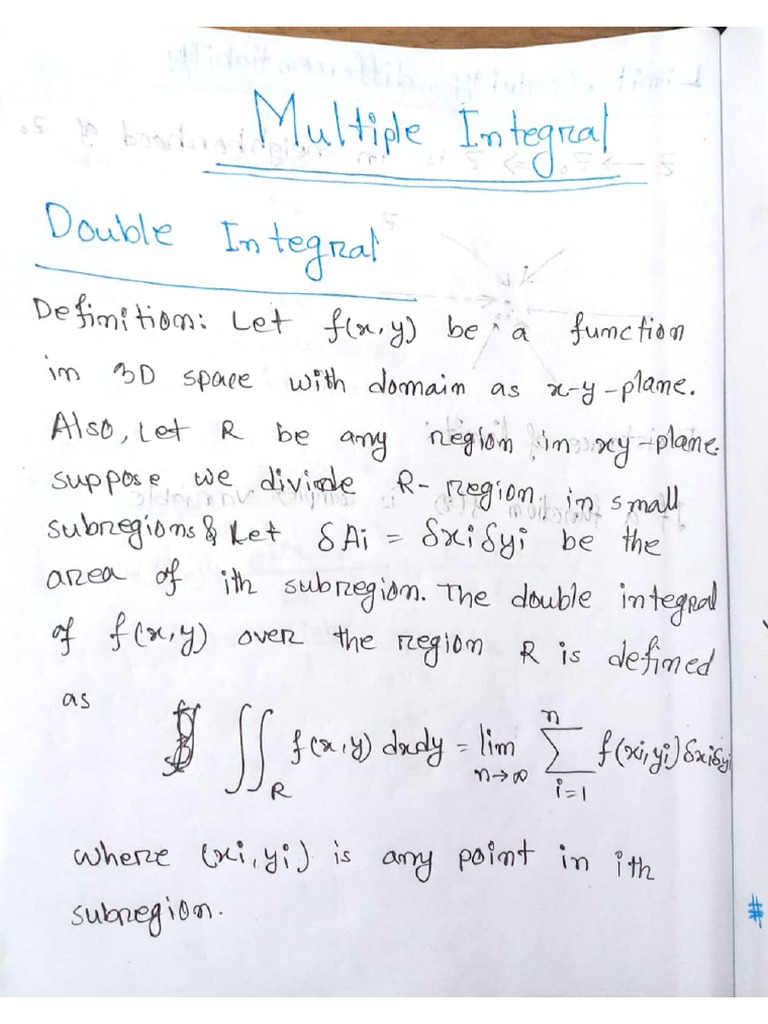 Multiple Integral
Double Integral
Definition: Let f(x,y) be a function
in 3D space with domain as x-y-plane.
Also, Let R be any region in xy-plane.
suppose we divide R-region in small
subregions & Let δAi = δxiδyi be the
area of ith subregion. The double integral
of f(x,y) over the region R is defined
as
∬_R f(x,y) dxdy = lim_{n→∞} ∑_{i=1}^{n} f(xi,yi) δxiδyi
where (xi,yi) is any point in ith
subregion.
#